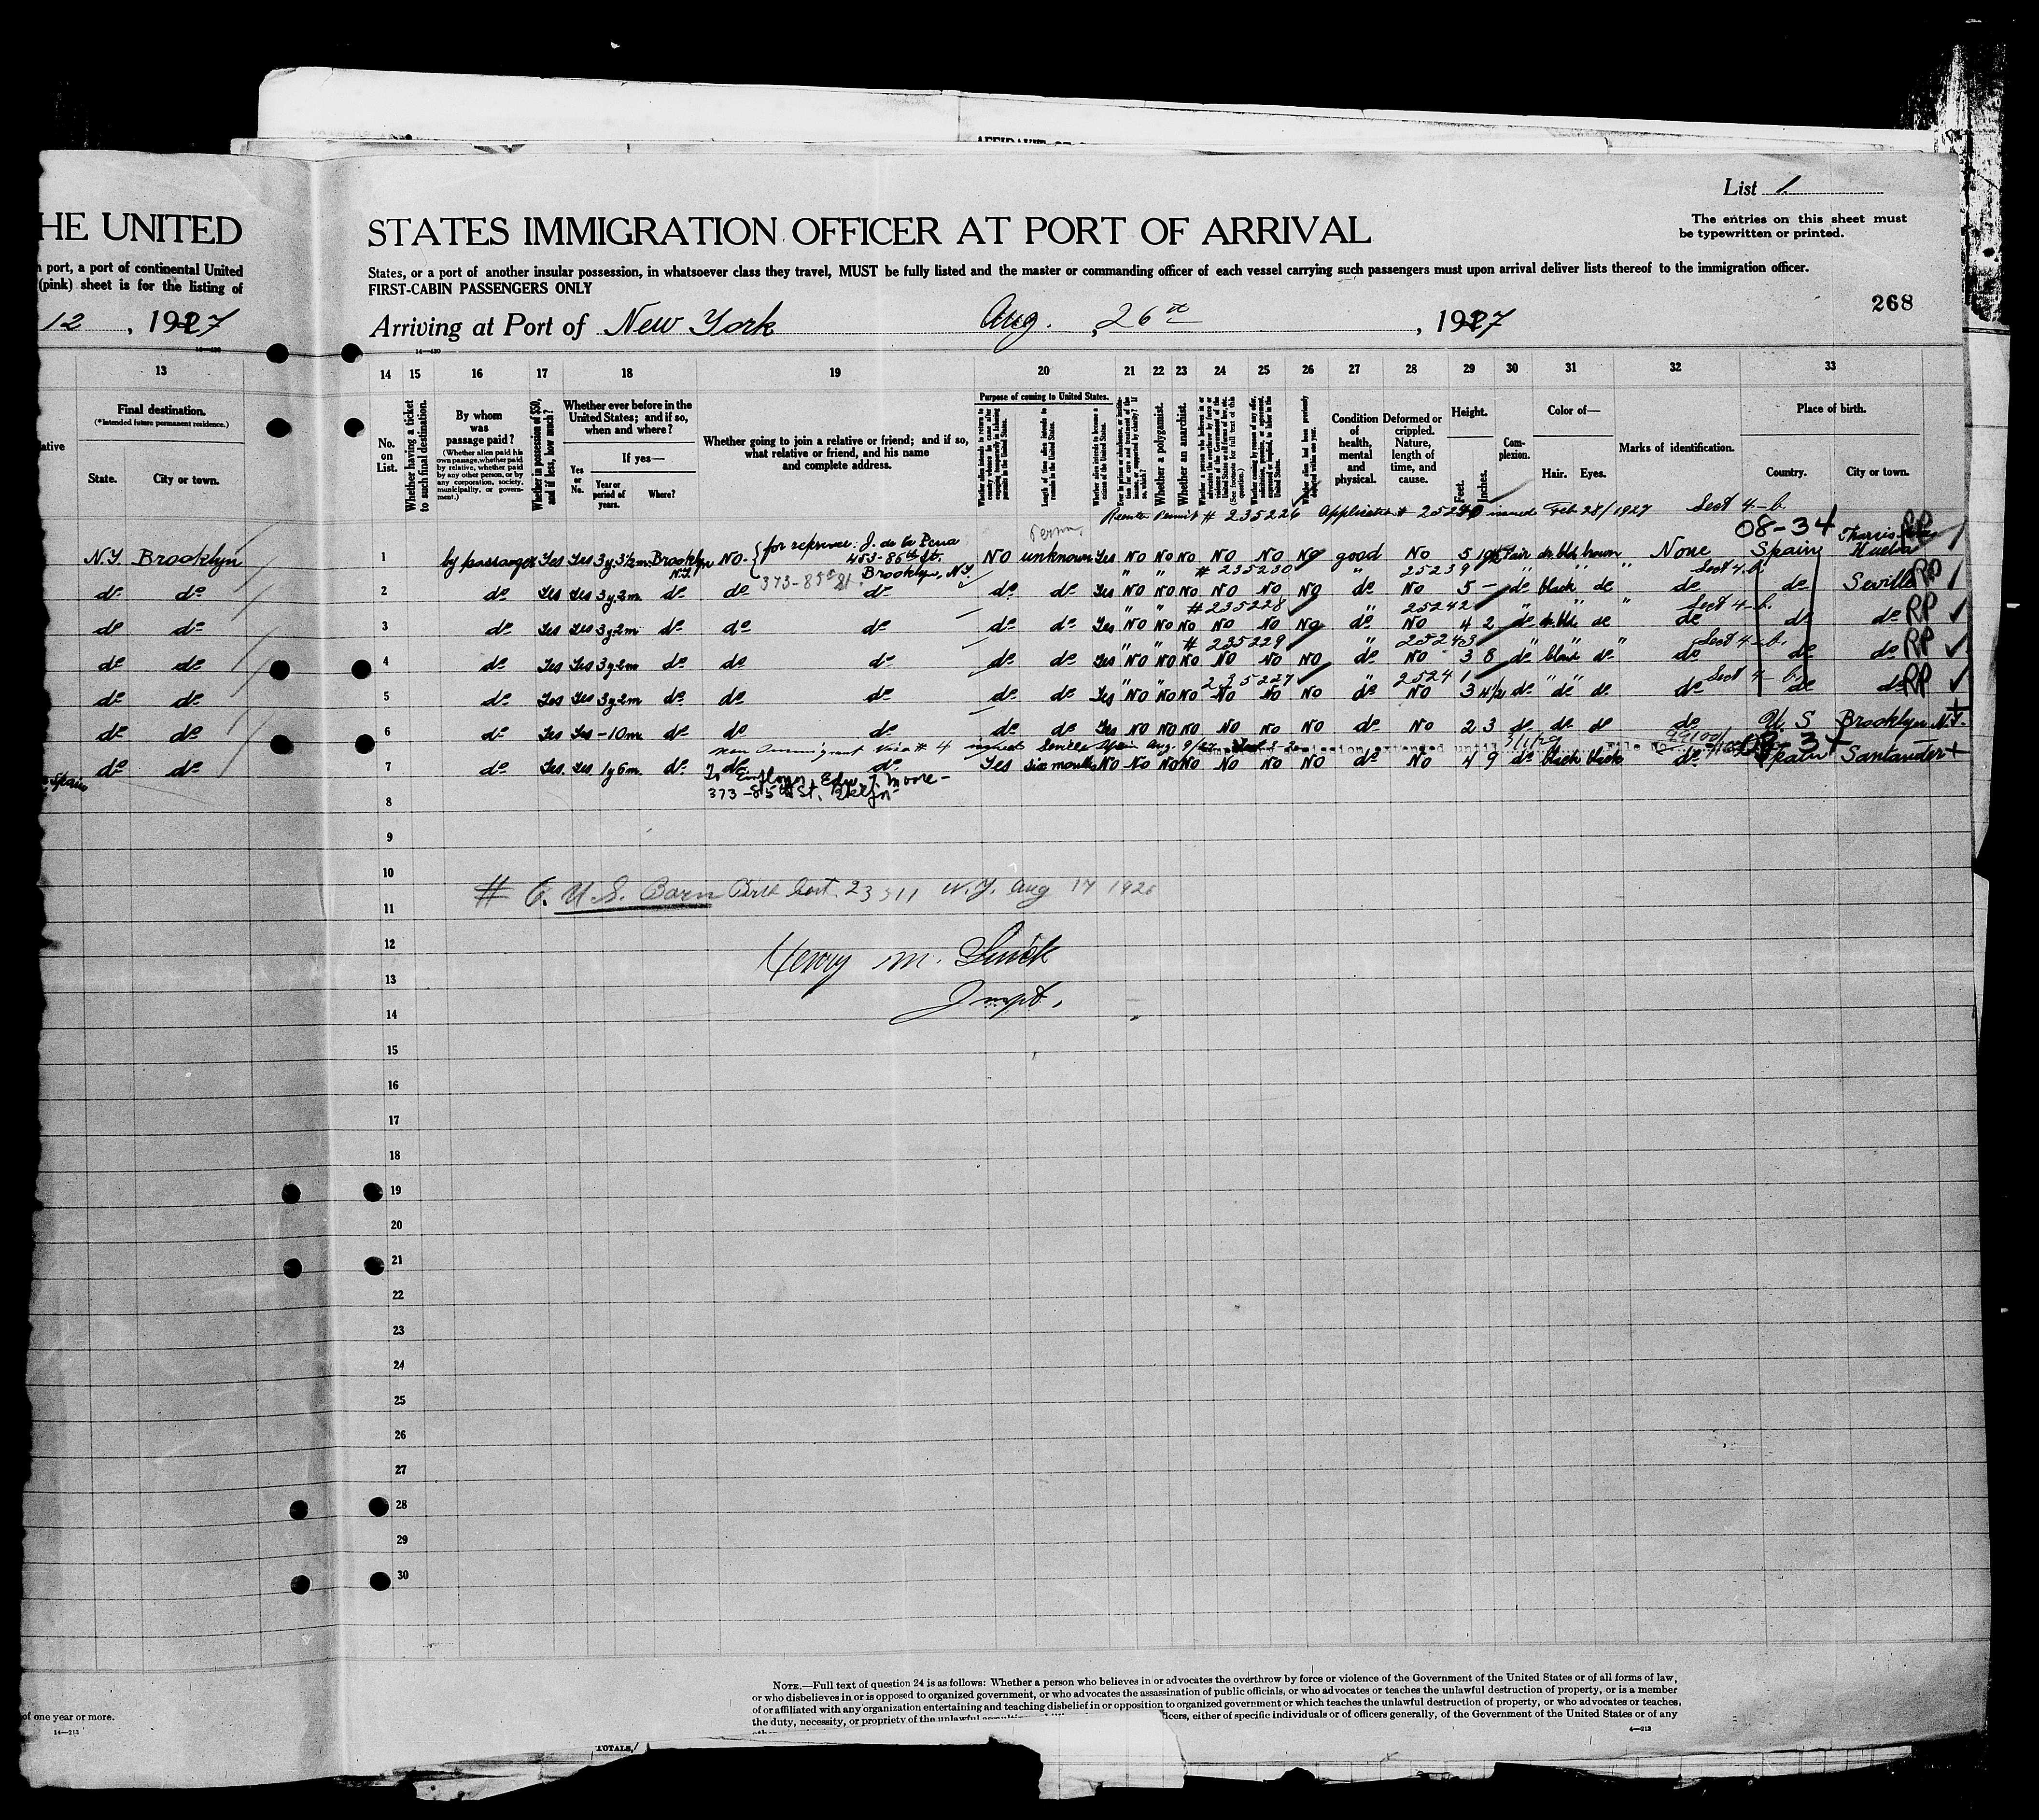 AFFIDAVIT OF
List 1
HE UNITED
STATES IMMIGRATION OFFICER AT PORT OF ARRIVAL
The entries on this sheet must
be typewritten or printed.
port, a port of continental United
(pink) sheet is for the listing of
States, or a port of another insular possession, in whatsoever class they travel, MUST be fully listed and the master or commanding officer of each vessel carrying such passengers must upon arrival deliver lists thereof to the immigration officer.
FIRST-CABIN PASSENGERS ONLY
268
12, 1927
Arriving at Port of New York Aug. 26th, 1927
14—430
14—430
13 14 15 16 17 18 19 20 21 22 23 24 25 26 27 28 29 30 31 32 33
Final destination.
(*Intended future permanent residence.)
State. City or town.
No. on List.
Whether having a ticket to such final destination.
By whom was passage paid?
(Whether alien paid his own passage, whether paid by relative, whether paid by any other person, or by any corporation, society, municipality, or government.)
Whether in possession of $50, and if less, how much?
Whether ever before in the United States; and if so, when and where?
Yes or No.
If yes—
Year or period of years.
Where?
Whether going to join a relative or friend; and if so, what relative or friend, and his name and complete address.
Purpose of coming to United States.
Length of time alien intends to remain in the United States.
Whether alien intends to become a citizen of the United States.
Whether a polygamist.
Whether an anarchist.
Condition of health, mental and physical.
Deformed or crippled. Nature, length of time, and cause.
Height.
Feet. Inches.
Complexion.
Color of—
Hair. Eyes.
Marks of identification.
Place of birth.
Country. City or town.
Reentry Permit # 235226 Application # 25240 issued Feb 28/1927 Sect 4-b
08-34
N.Y. Brooklyn 1 by passenger Yes Yes 3y 3½m Brooklyn N.Y. No- {for reference: J. de la Pena 453-86th St. Brooklyn, N.Y. No unknown Yes No No No No No No good No 5 Fair dk.bld brown None Spain Tharsis Huelva RP
373-85th St
# 235230 25239 Sect 4-b
do do 2 do Yes Yes 3y.2m. do do do do do Yes No No No No No No do No 5 - do black do do do Sevilla RP
# 235228 25242 Sect 4-b.
do do 3 do Yes Yes 3y2m do do do do do Yes No No No No No No do No 4 2 do dk.bld do do do do RP
# 235229 25243 Sect 4-b.
do do 4 do Yes Yes 3y.2m do do do do do Yes No No No No No No do No 3 8 do black do do do do RP
235227 25241 Sect 4-b.
do do 5 do Yes Yes 3y2m do do do do do Yes No No No No No No do No 3 4½ do do do do do do RP
do do 6 do Yes Yes -10m do do do do do Yes No No No No No No do No 2 3 do do do do U.S Brooklyn N.Y.
Non Immigrant Visa # 4 issued Seville Spain Aug. 9/27
extended until
File No.
08-34
do do 7 do Yes. Yes 1y6m. do do do Yes six months No No No No No No No do No 4 9 do black black do Spain Santander
To Employer, Edw. J. Moore-
373-85th St. Bklyn
Spain
8
9
10
# 6. U.S. Born Birth Cert. 23511 N.Y. Aug 17 1926
11
12
Henry M.
13
Inspt.
14
15
16
17
18
19
20
21
22
23
24
25
26
27
28
29
30
of one year or more.
14—213
NOTE.—Full text of question 24 is as follows: Whether a person who believes in or advocates the overthrow by force or violence of the Government of the United States or of all forms of law,
or who disbelieves in or is opposed to organized government, or who advocates the assassination of public officials, or who advocates or teaches the unlawful destruction of property, or is a member
of or affiliated with any organization entertaining and teaching disbelief in or opposition to organized government or which teaches the unlawful destruction of property, or who advocates or teaches,
the duty, necessity, or propriety of the unlawful officers, either of specific individuals or of officers generally, of the Government of the United States or of any
4—213
TOTALS,